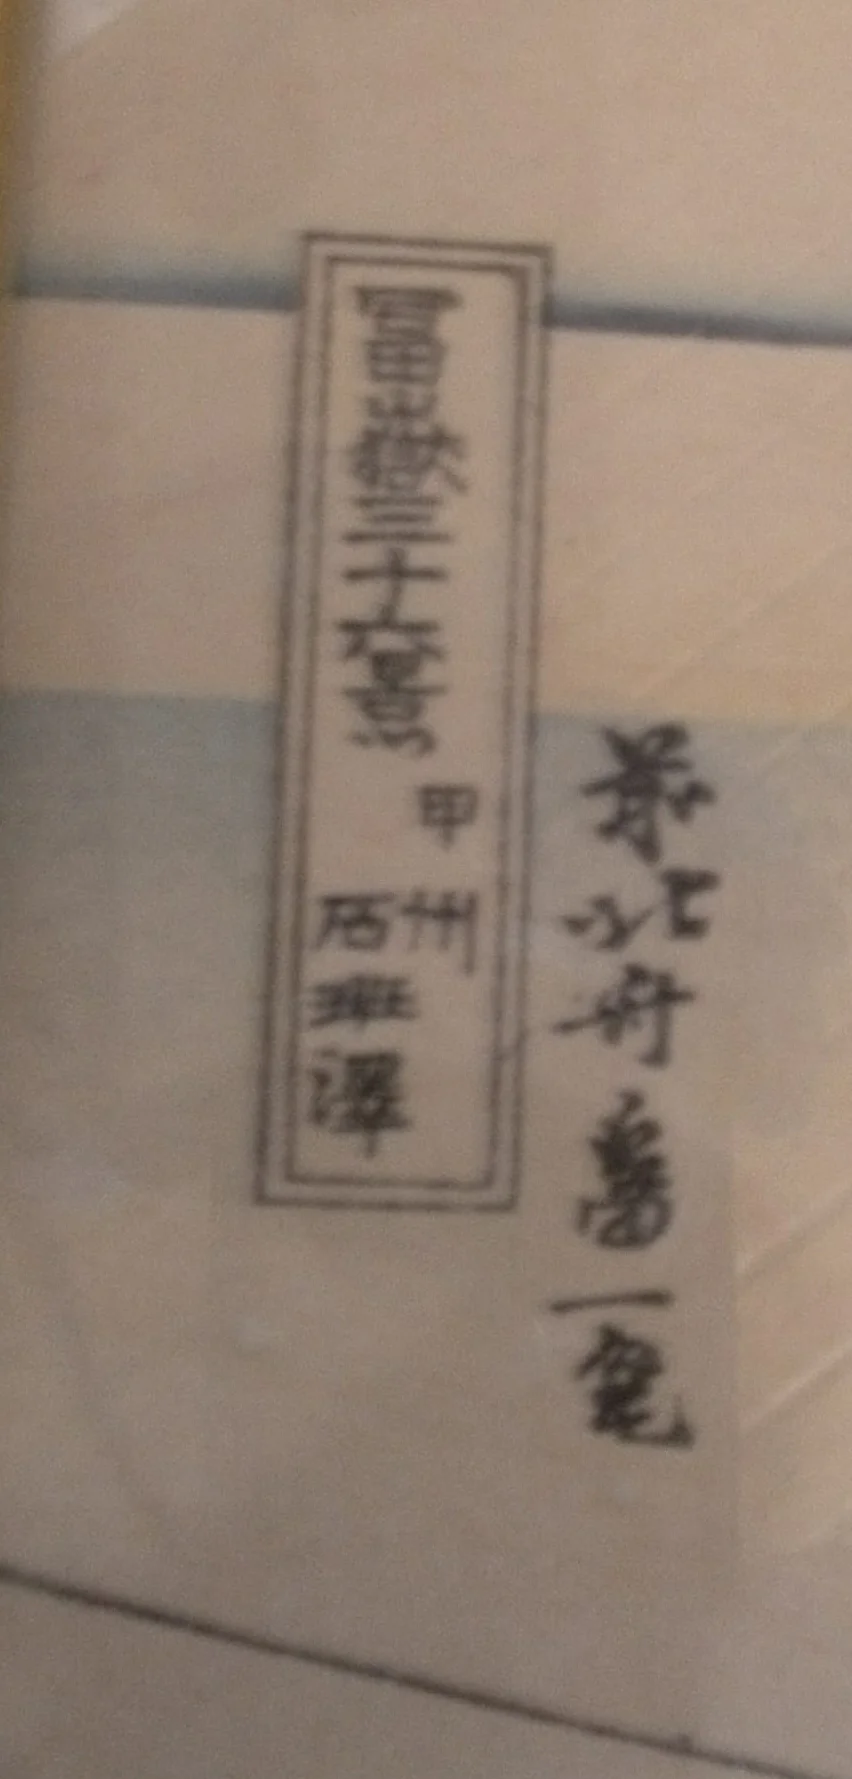 冨嶽三十六景
甲州
石班澤
前北斎為一筆